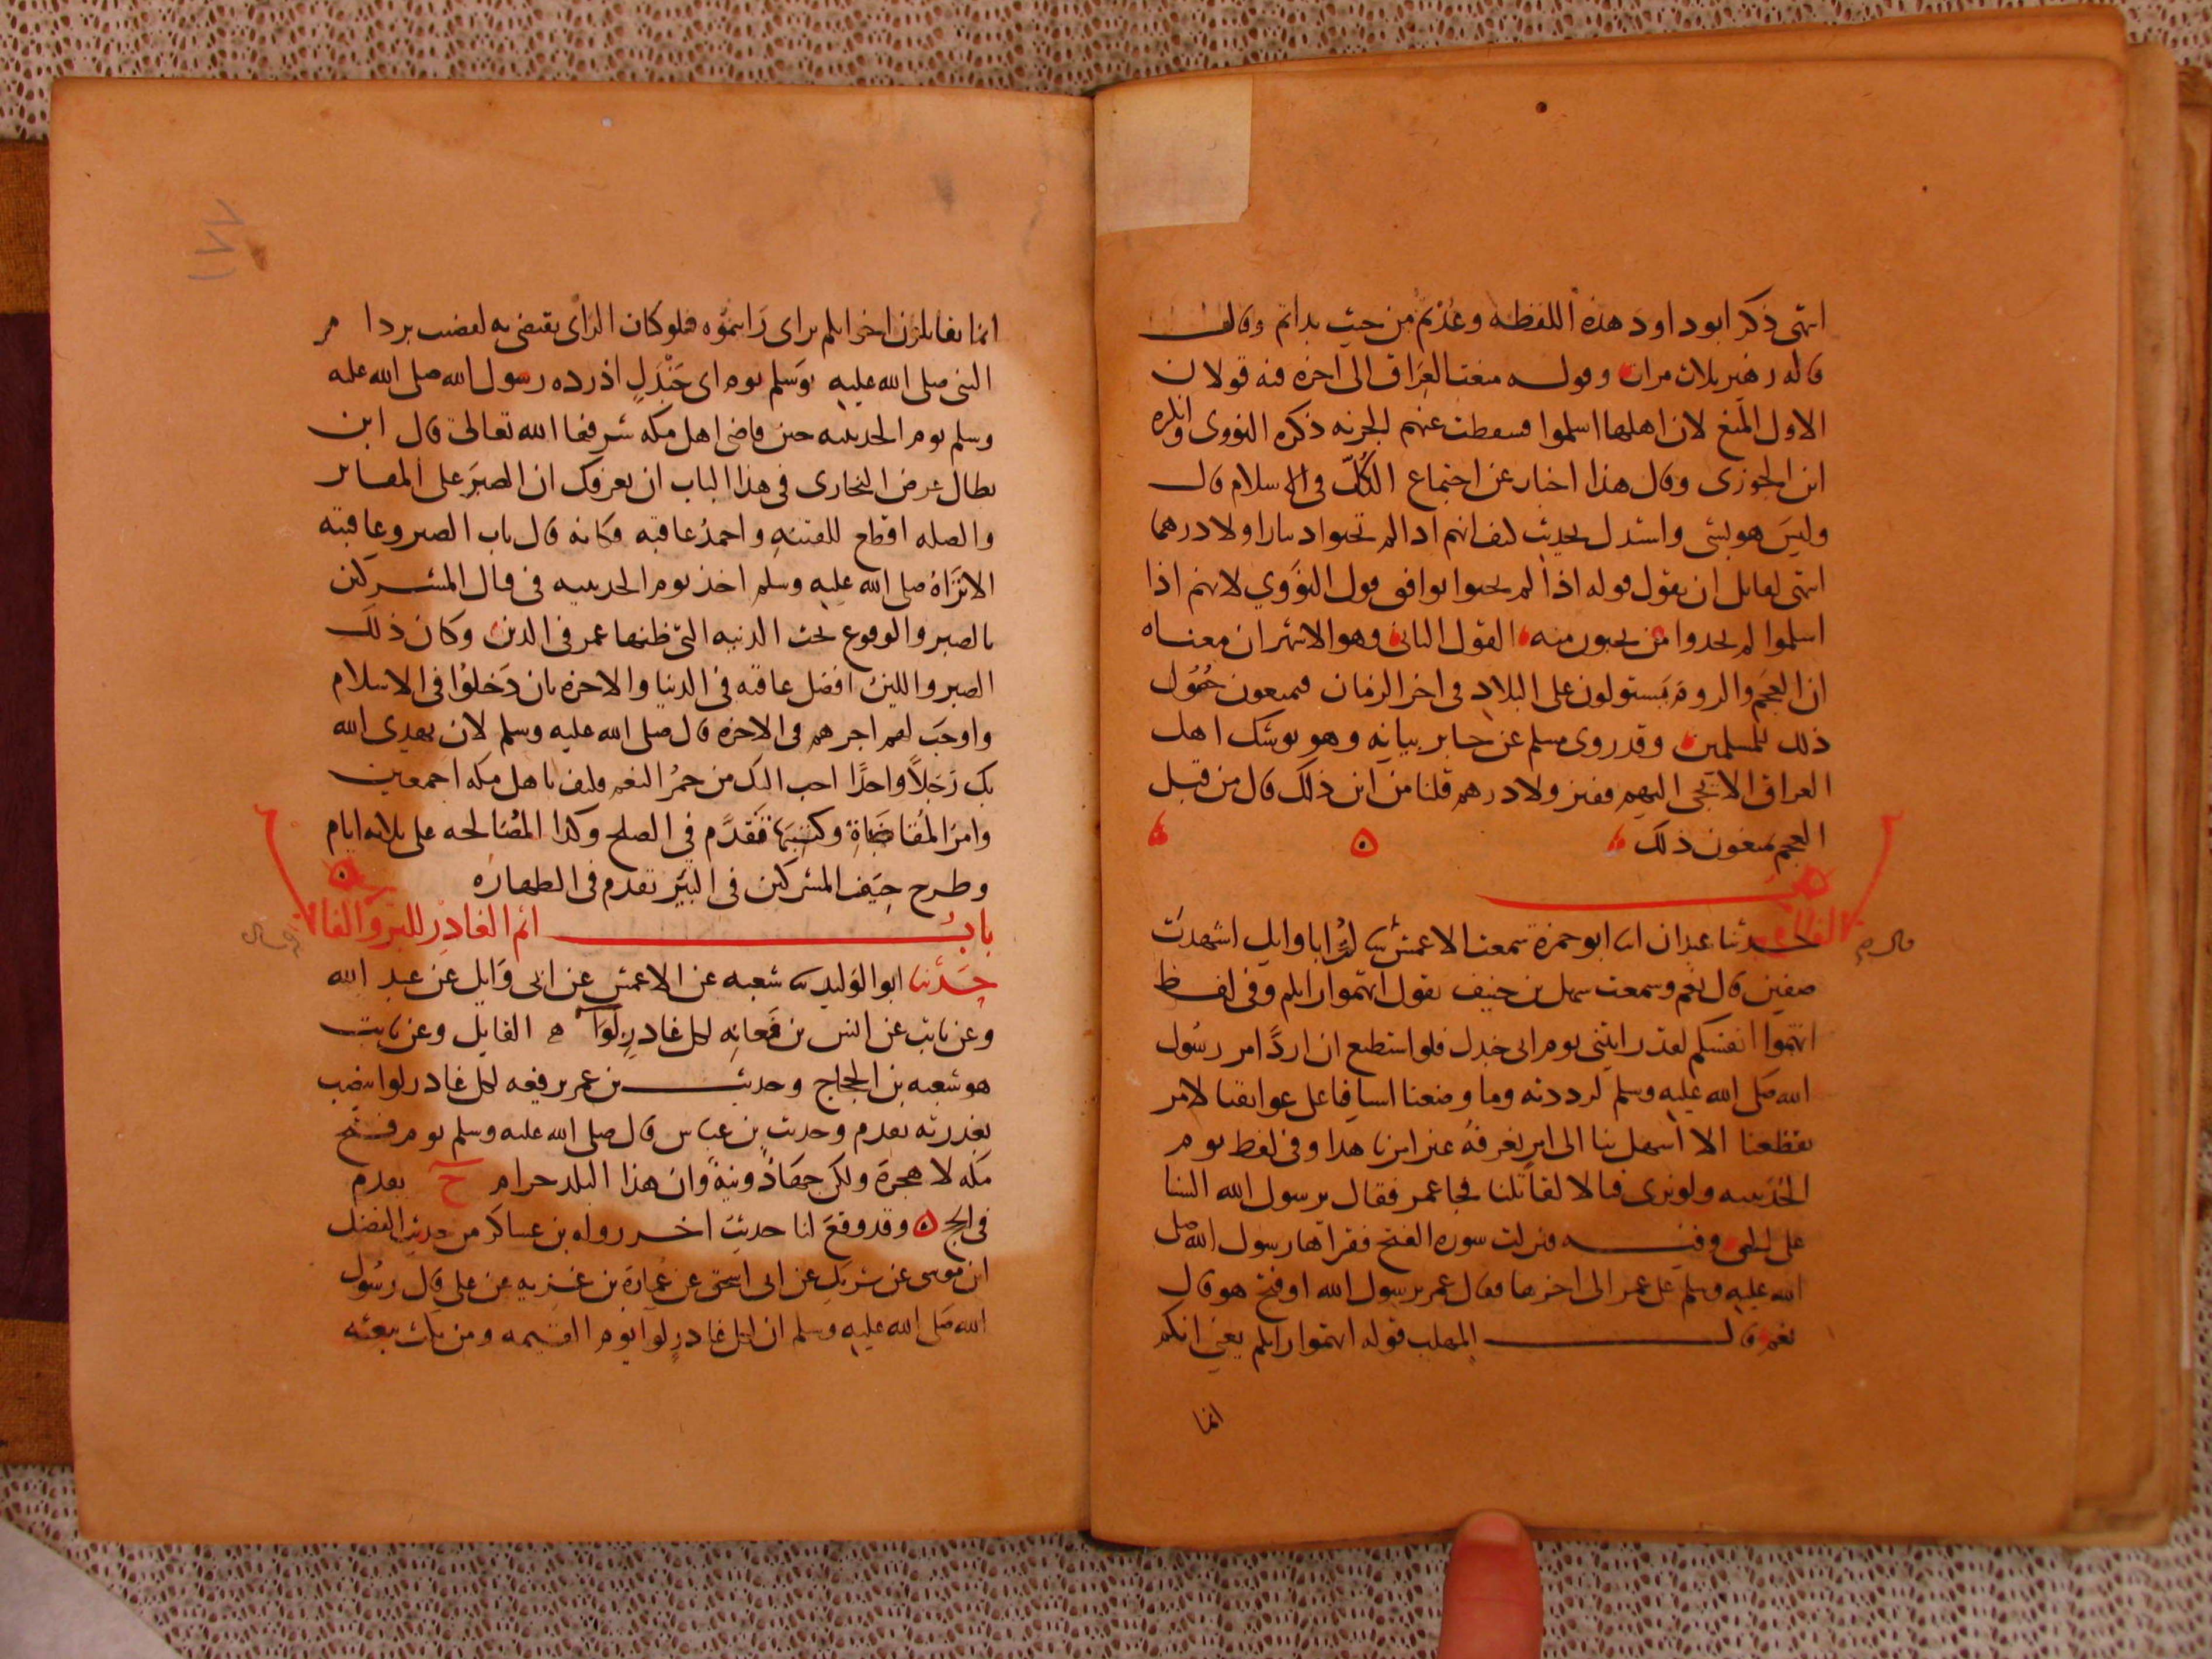 انتهى ذكر ابو داود هذه اللفظه وعُدْتم من حيث بدأتم وقال
قاله زهير ثلاث مرات وقوله منعت العِرَاق الى اخره فيه قولان
الاول المنع لان اهلها اسلموا فسقطت عنهم الجزيه ذكره النووى وانكره
ابن الجوزى وقال هذا اخبار عن اجتماع الكُلّ فى الاسلام قال
وليسَ هو بشى واستدل بحديث كيف انتم اذا لم تجبوا دينارا ولا درهما
انتهى لقايل ان يقول قوله اذا لم يجبوا يوافق قول النوَوي لانهم اذا
اسلموا لم يجدوا من يجبون منه القول الثانى وهو الاشهر ان معناه
ان العجَم والروم يَستولون على البلاد فى اخر الزمان فيمنعون حُصُول
ذلك للمسلمين وقد روى مسلم عن جابر بيانه وهو يوشك اهل
العراق الا يجى اليهم قفيز ولا درهم قلنا من اين ذلك قال من قبل
العجم يمنعون ذلك
حدثنا عبدان ابو حمزة سمعت الاعمش ابا وايل اشهدت
صفين قال نعم وسمعت سهل بن حنيف يقول اتهموا رايكم وفى لفظ
اتهموا انفسكم لقد رايتنى يوم ابى جندل فلو استطيع ان اردَّ امر رسُول
الله صَلى الله عليه وسلم لرددته وما وضعنا اسيافنا على عواتقنا لامر
يفظعنا الا اسهل بنا الى امرٍ نعرفهُ غير امرنا هذا وفى لفظ يوم
الحُدَيبيه ولو نرى قتالا لقاتلنا فجا عمر فقال يرسول الله السنا
على الحق وفيه فنزلت سوره الفتح فقراها رسول الله صلى
الله عليه وسلم على عمر الى اخرها فقال عمر يرسول الله اوفتح هو قال
نعم قال المهلب قوله اتهموا رايكم يعني انكم
انما
١٧٧
انما يقاتلون اخوانكم براى رَايتموْه فلو كان الرَاى يقتضى به لقضيت برد امر
النبى صلى الله عليه وَسلم يوم ابى جَنْدَلٍ اذ رده رسول الله صلى الله عليه
وسلم يوم الحديبيه حين قاضى اهل مكه شرفها الله تعالى قال ابن
بطال غرض البخارى فى هذا الباب ان يعرفك ان الصبَر على
والصله اقطع للفتنه واحمدُ عاقبه وكانه قال باب الصبر وعاقبته
الا ترَاهُ صلى الله عليه وسلم اخذ يوم الحديبيه فى قتال المشركين
بالصبر والوقوع تحت الدنيه التى ظنها عمر فى الدين وكان ذلك
الصبر واللين افضل عاقبه فى الدنيا والاخره بان دَخلوُا فى الاسلام
واوجَب لهم اجرهم فى الاخره قال صلى الله عليه وسلم لان يهدى الله
بك رَجلاً واحدًا احب اليك من حمْرُ النعم فكيف باهل مكه اجمعين
وامرُ المُقاضَاةِ وكتبَتها تَقدَّم في الصلح وكذا المُصَالحه على ثلاثه ايام
وطرح جِيَف المشركين فى البئر تقدم فى الطهاره
بابُ اثم الغادِر للبَر وَالفاجر
حَدثنا ابو الوَليد شعبه عن الاعمش عن ابى وَايل عن عبد الله
وعن ثابت عن انس لكل غادرٍ لواَء القايل وعن ثابت
هو شعبه بن الحجاج وحديث بن عمر يرفعه لكل غادر لوا ينصب
بغدرته تقدم وحديث بن عباس قال صلى الله عليه وسلم يوم فتح
مكه لا هجرة ولكن جهَادٌ ونيةٌ وان هذا البلد حرام ح تقدم
فى الحج وقد وقعَ لنا حديث اخر رواه بن عساكر من حديث الفضل
ابن موسى عن شريك عن ابى اسحق عن عُمارة بن غزيه عن على قال رسُول
الله صَلى الله عليه وسلم ان لكل غادرٍ لوا يوم القيمه ومن نكث بيعته